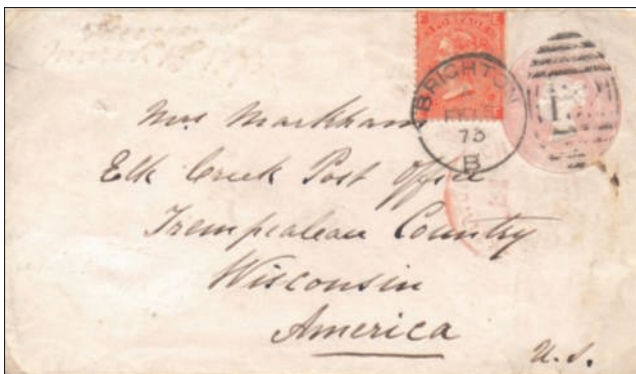 POSTAGE
BRIGHTON
73
B
Mrs Markham
Elk Creek Post Office
Trempealeau Country
Wisconsin
America
U.S.